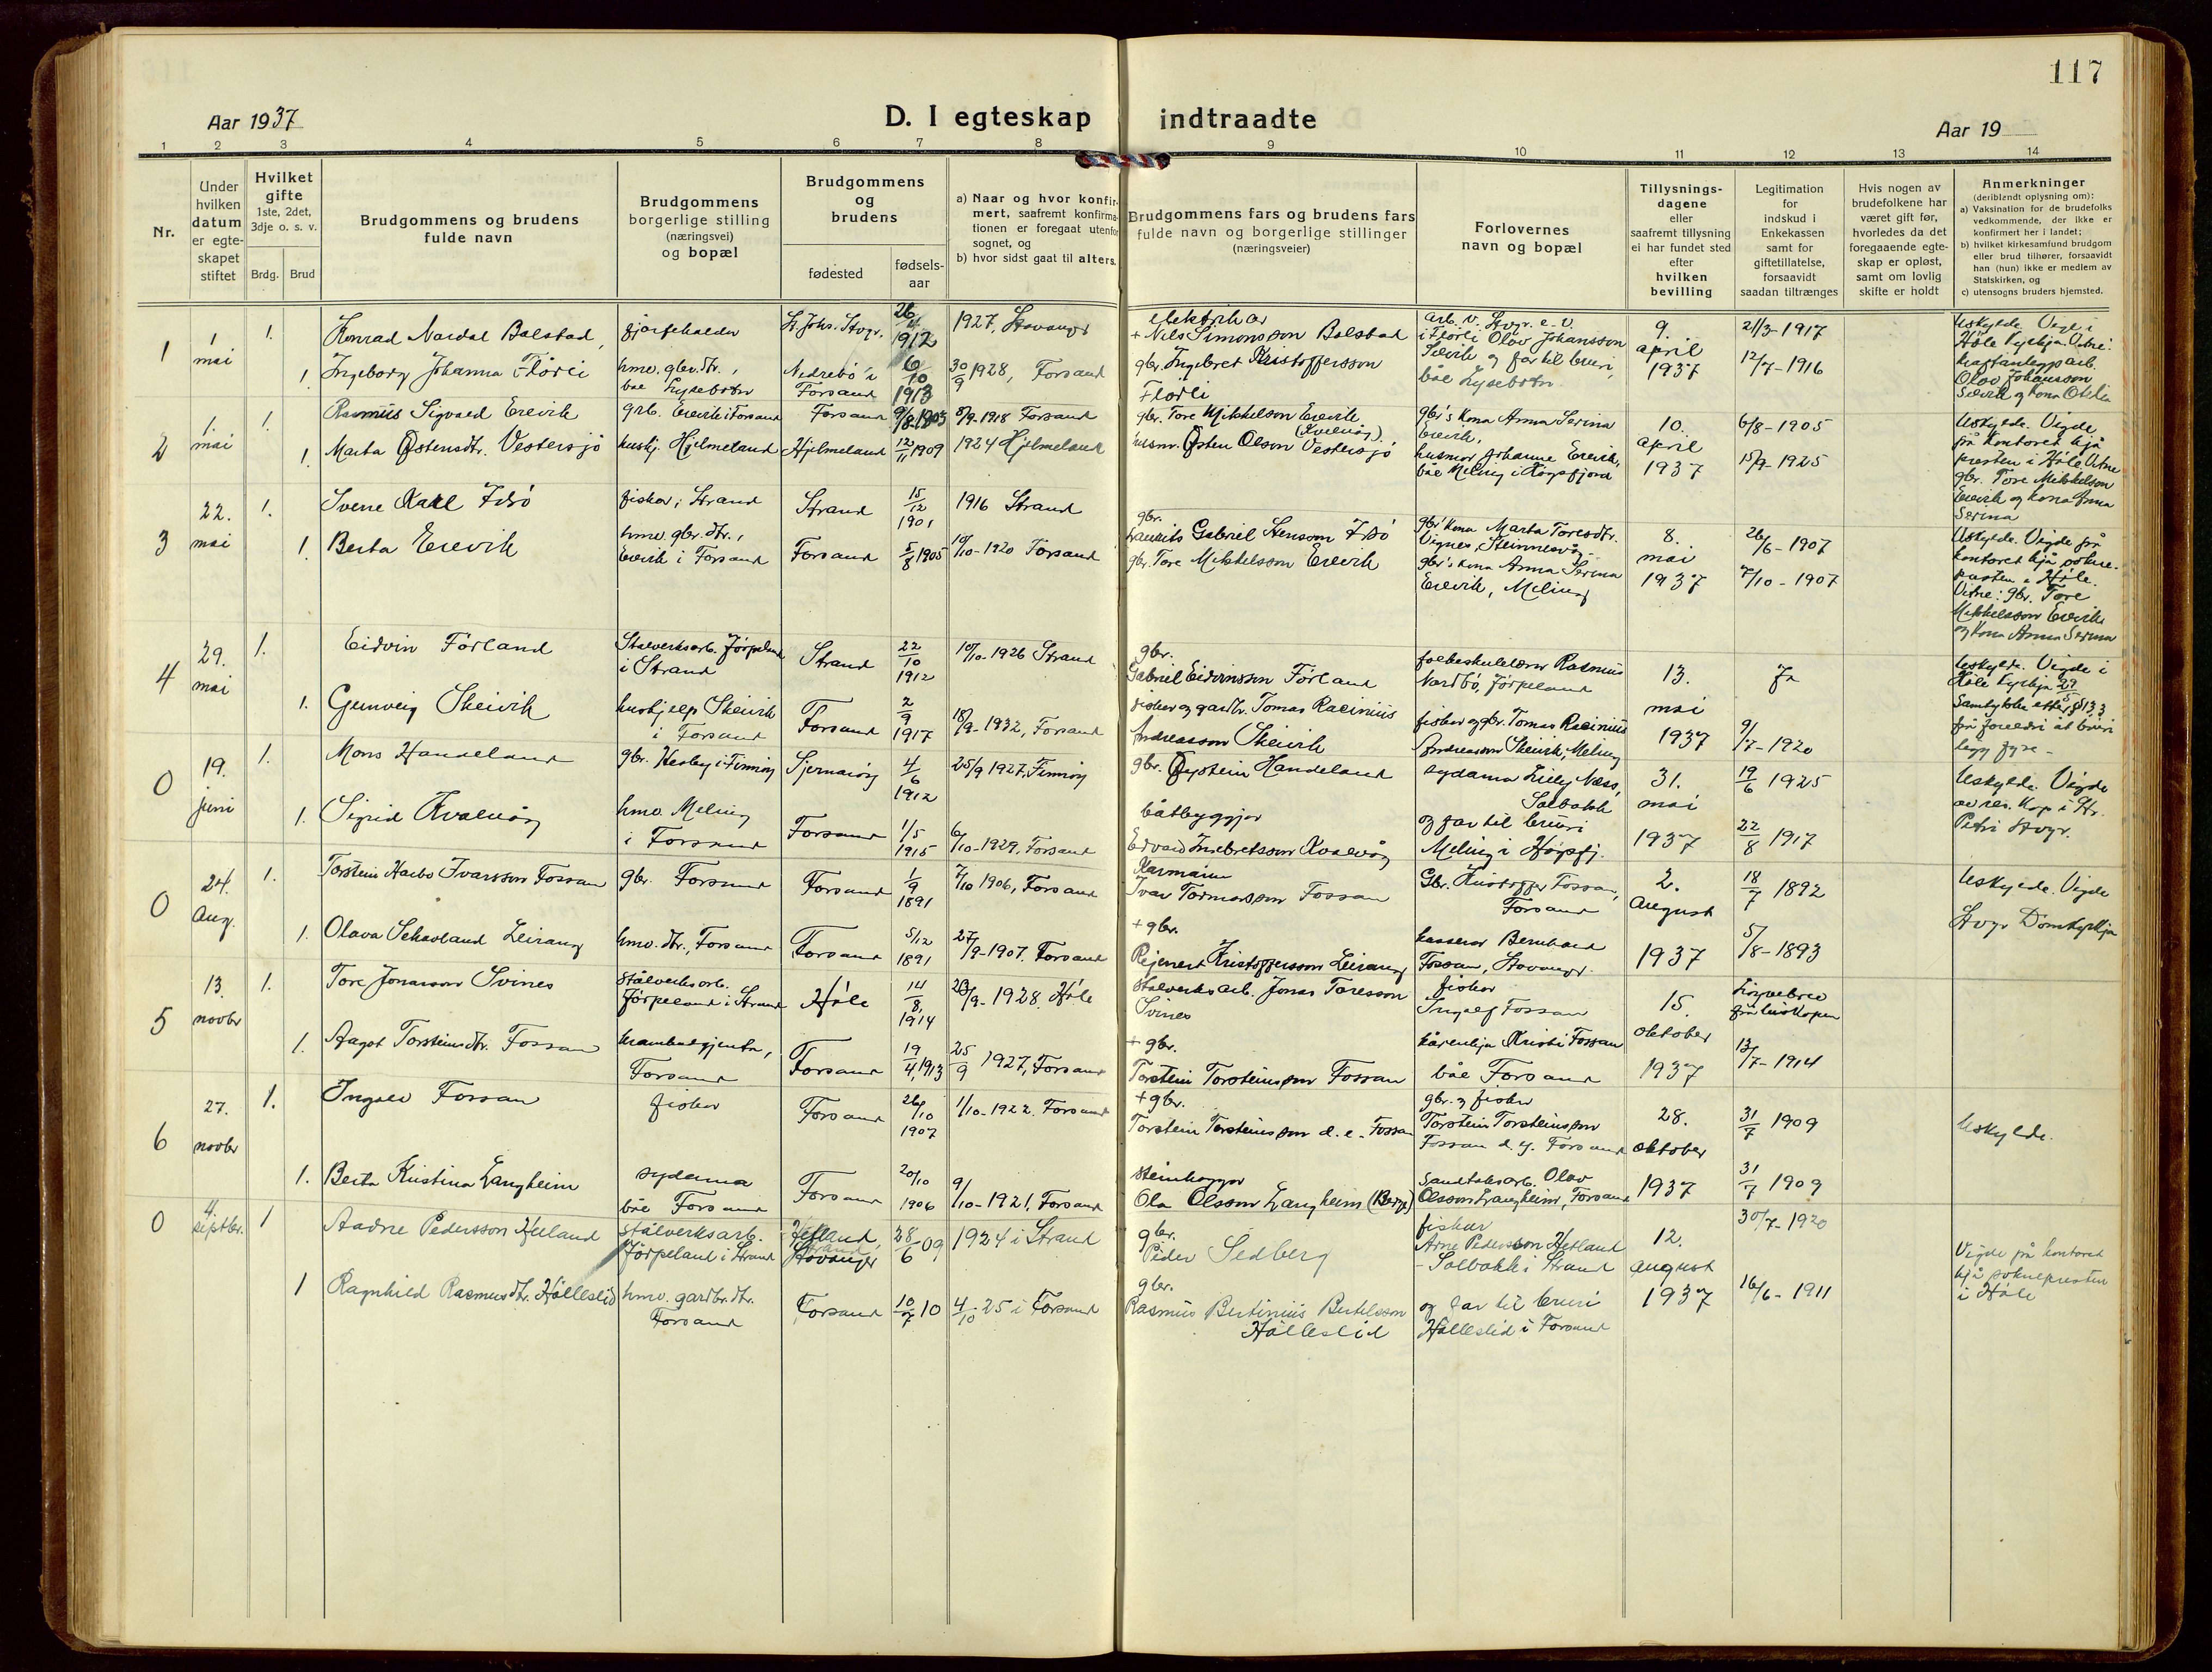 117
Aar 1937
D. I egteskap indtraadte
Aar 19
1 2 3 4 5 6 7 8 9 10 11 12 13 14
Nr.
Under
hvilken
datum
er egte-
skapet
stiftet
Hvilket
gifte
1ste, 2det,
3dje o. s. v.
Brdg. Brud
Brudgommens og brudens
fulde navn
Brudgommens
borgerlige stilling
(næringsvei)
og bopæl
Brudgommens
og
brudens
fødested
fødsels-
aar
a) Naar og hvor konfir-
mert, saafremt konfirma-
tionen er foregaat utenfor
sognet, og
b) hvor sidst gaat til alters.
Brudgommens fars og brudens fars
fulde navn og borgerlige stillinger
(næringsveier)
Forlovernes
navn og bopæl
Tillysnings-
dagene
eller
saafremt tillysning
ei har fundet sted
efter
hvilken
bevilling
Legitimation
for
indskud i
Enkekassen
samt for
giftetillatelse,
forsaavidt
saadan tiltrænges
Hvis nogen av
brudefolkene har
været gift før,
hvorledes da det
foregaaende egte-
skap er opløst,
samt om lovlig
skifte er holdt
Anmerkninger
(deriblandt oplysning om):
a) Vaksination for de brudefolks
vedkommende, der ikke er
konfirmert her i landet;
b) hvilket kirkesamfund brudgom
eller brud tilhører, forsaavidt
han (hun) ikke er medlem av
Statskirken, og
c) utensogns bruders hjemsted.
1
1
mai
1.
Konrad Nardal Bolstad,
St. Johs. Stvgr.
26/4
1912
1927, Stavanger
+ Nils Simonsson Bolstad
arb. v. Stvgr. e.v.
i Flørli Olav Johansson
Sævik og far til bruri,
båe Lysebotn
9.
april
1937
21/3-1917
12/7-1916
1.
Ingeborg Johanna Flørli
hmv. gbr.dtr.,
bae Lysebotn
Nedrebö i
Forsand
6/10
1913
30/9 1928, Forsand
gbr. Ingebret Kristoffersson
Flørli
Uskylde. Vigt i
Høle kyrkja. Vitne:
kraftanleggsarb.
Olav Johansson
Sævik og kona Otelia
2
1.
mai
1.
Rasmus Sigvald Erevik
grb. Erevik i Forsand
Forsand
9/8 1903
8/9-1918 Forsand
gbr. Tore Mikkelson Erevik
(Kvalvåg).
gbr's kona Anna Serina
Erevik,
husmor Johanne Erevik,
båe Meling i Høgsfjord
10.
april
1937
6/8-1905
15/9-1925
1.
Marta Østensdtr. Vestersjø
hushj. Hjelmeland
Hjelmeland
12/11 1909
1924 Hjelmeland
husm. Østen Olson Vestersjø
Uskylde. Vigde
på kontoret hjå
presten i Høle. Vitne
gbr. Tore Mikkelson
Erevik og kona Anna
Serina
3
22.
mai
1.
Sven Karl Idsø
fiskar, Strand
Strand
15/12
1901
1916 Strand
gbr.
Laurits Gabriel Stenson Idsø
gbr' kona Marta Toresdtr.
Vignes, Steinnesvåg
gbr's kona Anna Serina
Erevik, Meling
8.
mai
1937
26/6-1907
7/10-1907
1.
Berta Erevik
hmv. gbr.dtr.,
Erevik i Forsand
Forsand
5/8 1905
10/10-1920 Forsand
gbr. Tore Mikkelsson Erevik
Uskylde. Vigde på
kontoret hjå sokne-
presten i Høle.
Vitne: gbr. Tore
Mikkelsson Erevik
og kona Anna Serina
4
29.
mai
1.
Eidvin Førland
Stalverksarb. Jørpeland
i Strand
Strand
22/10
1912
10/10-1926 Strand
gbr.
Gabriel Eidvinsson Førland
folkeskulelærer Rasmus
Nordbø, Jørpeland
fiskar og gbr. Tomas Racinius
Andreasson Skeivik, Meling
13.
mai
1937
Ja
9/7-1920
1.
Gunveig Skeivik
hushjelp Skeivik
i Forsand
Forsand
2/9
1917
18/9-1932, Forsand
fiskar og gardbr. Tomas Racinius
Andreasson Skeivik
Uskylde. Vigde i
Høle kyrkja 29/5
Samtykke etter § 13.3
frå foreldri at bruri
0
19.
juni
1.
Mons Handeland
gbr. Hesby i Finnøy
Sjernarøy
4/6
1912
25/9 1927, Finnøy
gbr. Øystein Handeland
sydama Lilly Næss,
Solbakk
og far til bruri
Meling i Høgsfj.
31.
mai
1937
19/6 1925
22/8 1917
1.
Sigrid Kvalvåg
hmv. Meling
i Forsand
Forsand
1/5
1915
6/10-1929, Forsand
båtbyggjar
Edvard Ingebretsson Kvalvåg
Uskylde. Vigde
av res. kap. i St.
Petri Stvgr.
0
24.
Aug.
1.
Torstein Harbo Ivarsson Fossan
gbr. Forsand
Forsand
1/9
1891
7/10 1906, Forsand
Ivar Tormodsson Fossan
Gbr. Kristoffer Fossan,
Forsand
kasserar Bernhard
Fossan, Stavanger
2.
august
1937
18/7 1892
5/8-1893
1.
Olava Schavland Leirang
hmv. dtr., Forsand
Forsand
5/12
1891
27/9-1907. Forsand
+ gbr.
Rejnert Kristoffersson Leirang
Uskylde. Vigde
Stvgr Domkyrkja
5
13.
novbr
1.
Tore Jonasson Svines
stålverksarb.
Jørpeland i Strand
Høle
14/8
1914
23/9-1928 Høle
stålverksarb. Jonas Toresson
Svines
fiskar
Ingolf Fossan
kårenkja Kristi Fossan
båe Forsand
15.
oktober
1937
Løyvebrev
frå biskopen
13/7-1914
1.
Aagot Torsteinsdtr. Fossan
krambudgjenta,
Forsand
Forsand
19/4 1913
25/9 1927, Forsand
+ gbr.
Torstein Torsteinsson Fossan
6
27.
novbr
1.
Ingolv Fossan
fiskar
Forsand
26/10
1907
1/10-1922. Forsand
+ gbr.
Torstein Torsteinsson d.e. Fossan
gbr. og fiskar
Torstein Torsteinsson
Fossan d.y. Forsand
Sandtaksarb. Olav
Olsson Langheim, Forsand
28.
oktober
1937
31/7 1909
31/7 1909
Uskylde.
1.
Berta Kristina Langheim
sydama
båe Forsand
Forsand
20/10
1906
9/10-1921, Forsand
steinhoggar
Ola Olsson Langheim (Berge)
0
4.
septbr.
1
Aadne Pedersson Hetland
stålverksarb.
Jørpeland i Strand
Hetland,
Stavanger
28/6 09
1924 i Strand
gbr.
Peder Sedberg
fiskar
Arne Pedersson Hetland
- Solbakk i Strand
og far til bruri
Hålleslid i Forsand
12.
august
1937
30/7-1920
16/6-1911
1
Ragnhild Rasmusdtr. Hålleslid
hmv. gardbr.dtr.
Forsand
Forsand
10/7 10
4/10-25 i Forsand
gbr.
Rasmus Bertinius Bertelsson
Hålleslid
Vigde på kontoret
hjå soknepresten
i Høle